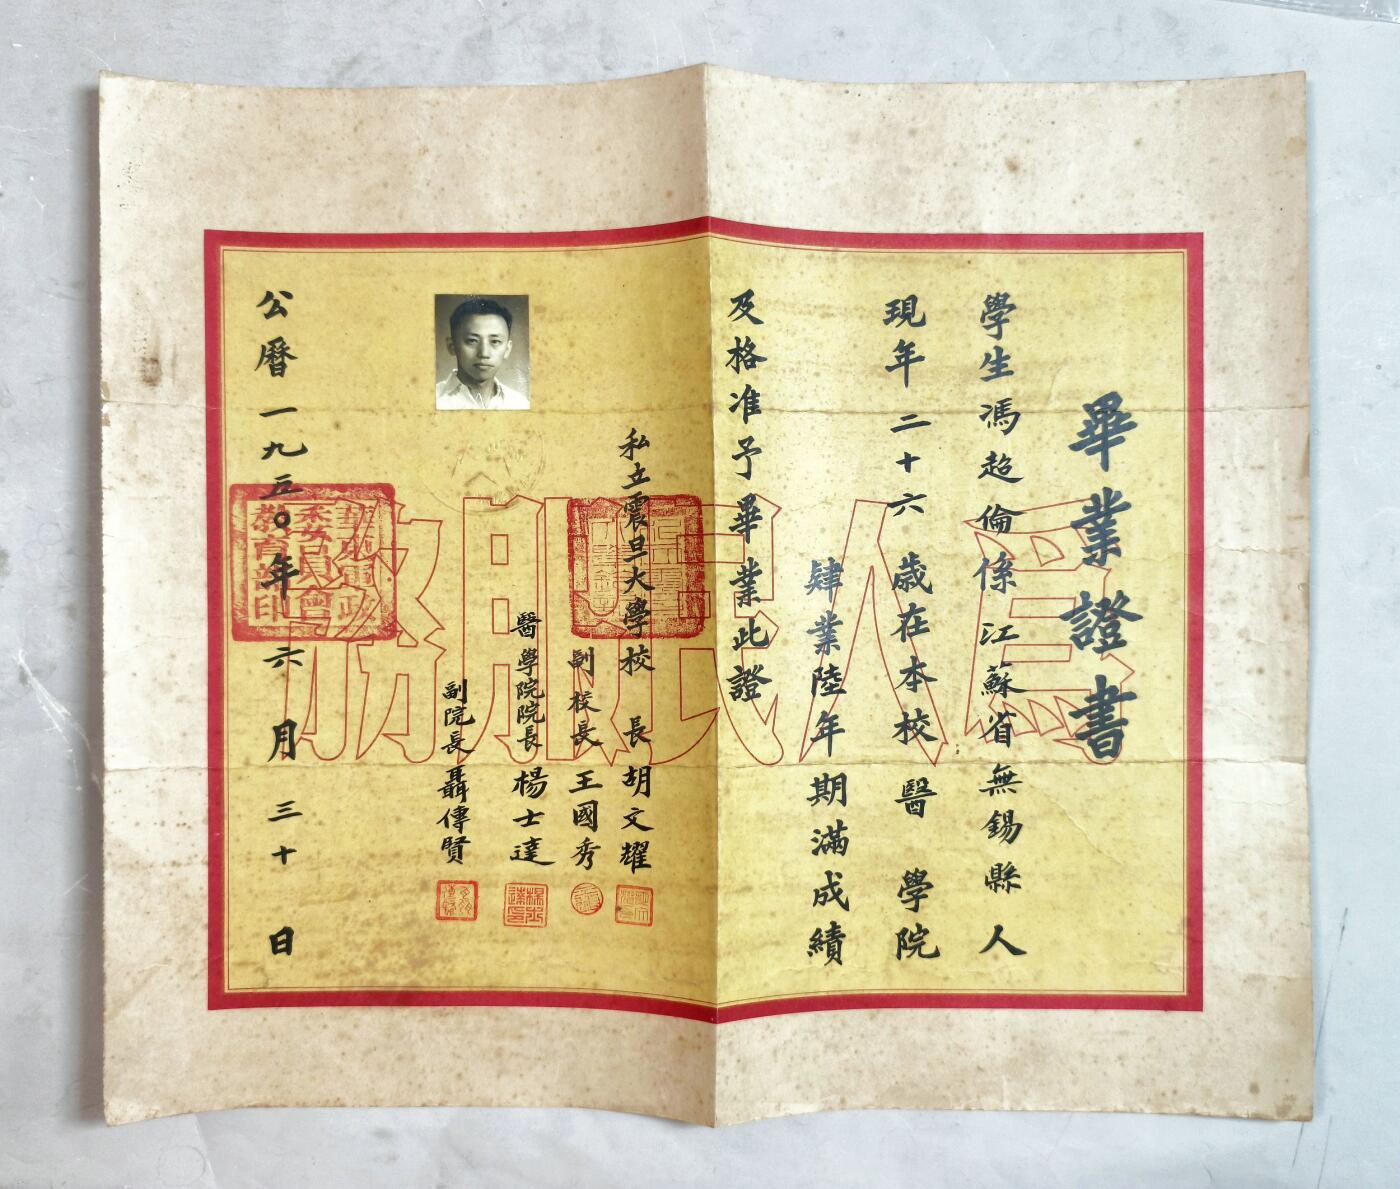 畢業證書
學生馮超倫係江蘇省無錫縣人
現年二十六歲在本校醫學院
肄業陸年期滿成績
及格准予畢業此證
私立震旦大學校長胡文耀
副校長王國秀
醫學院院長楊士達
副院長聶傳賢
公曆一九五〇年六月三十日
為人民服務
華東軍政
委員會
教育部印